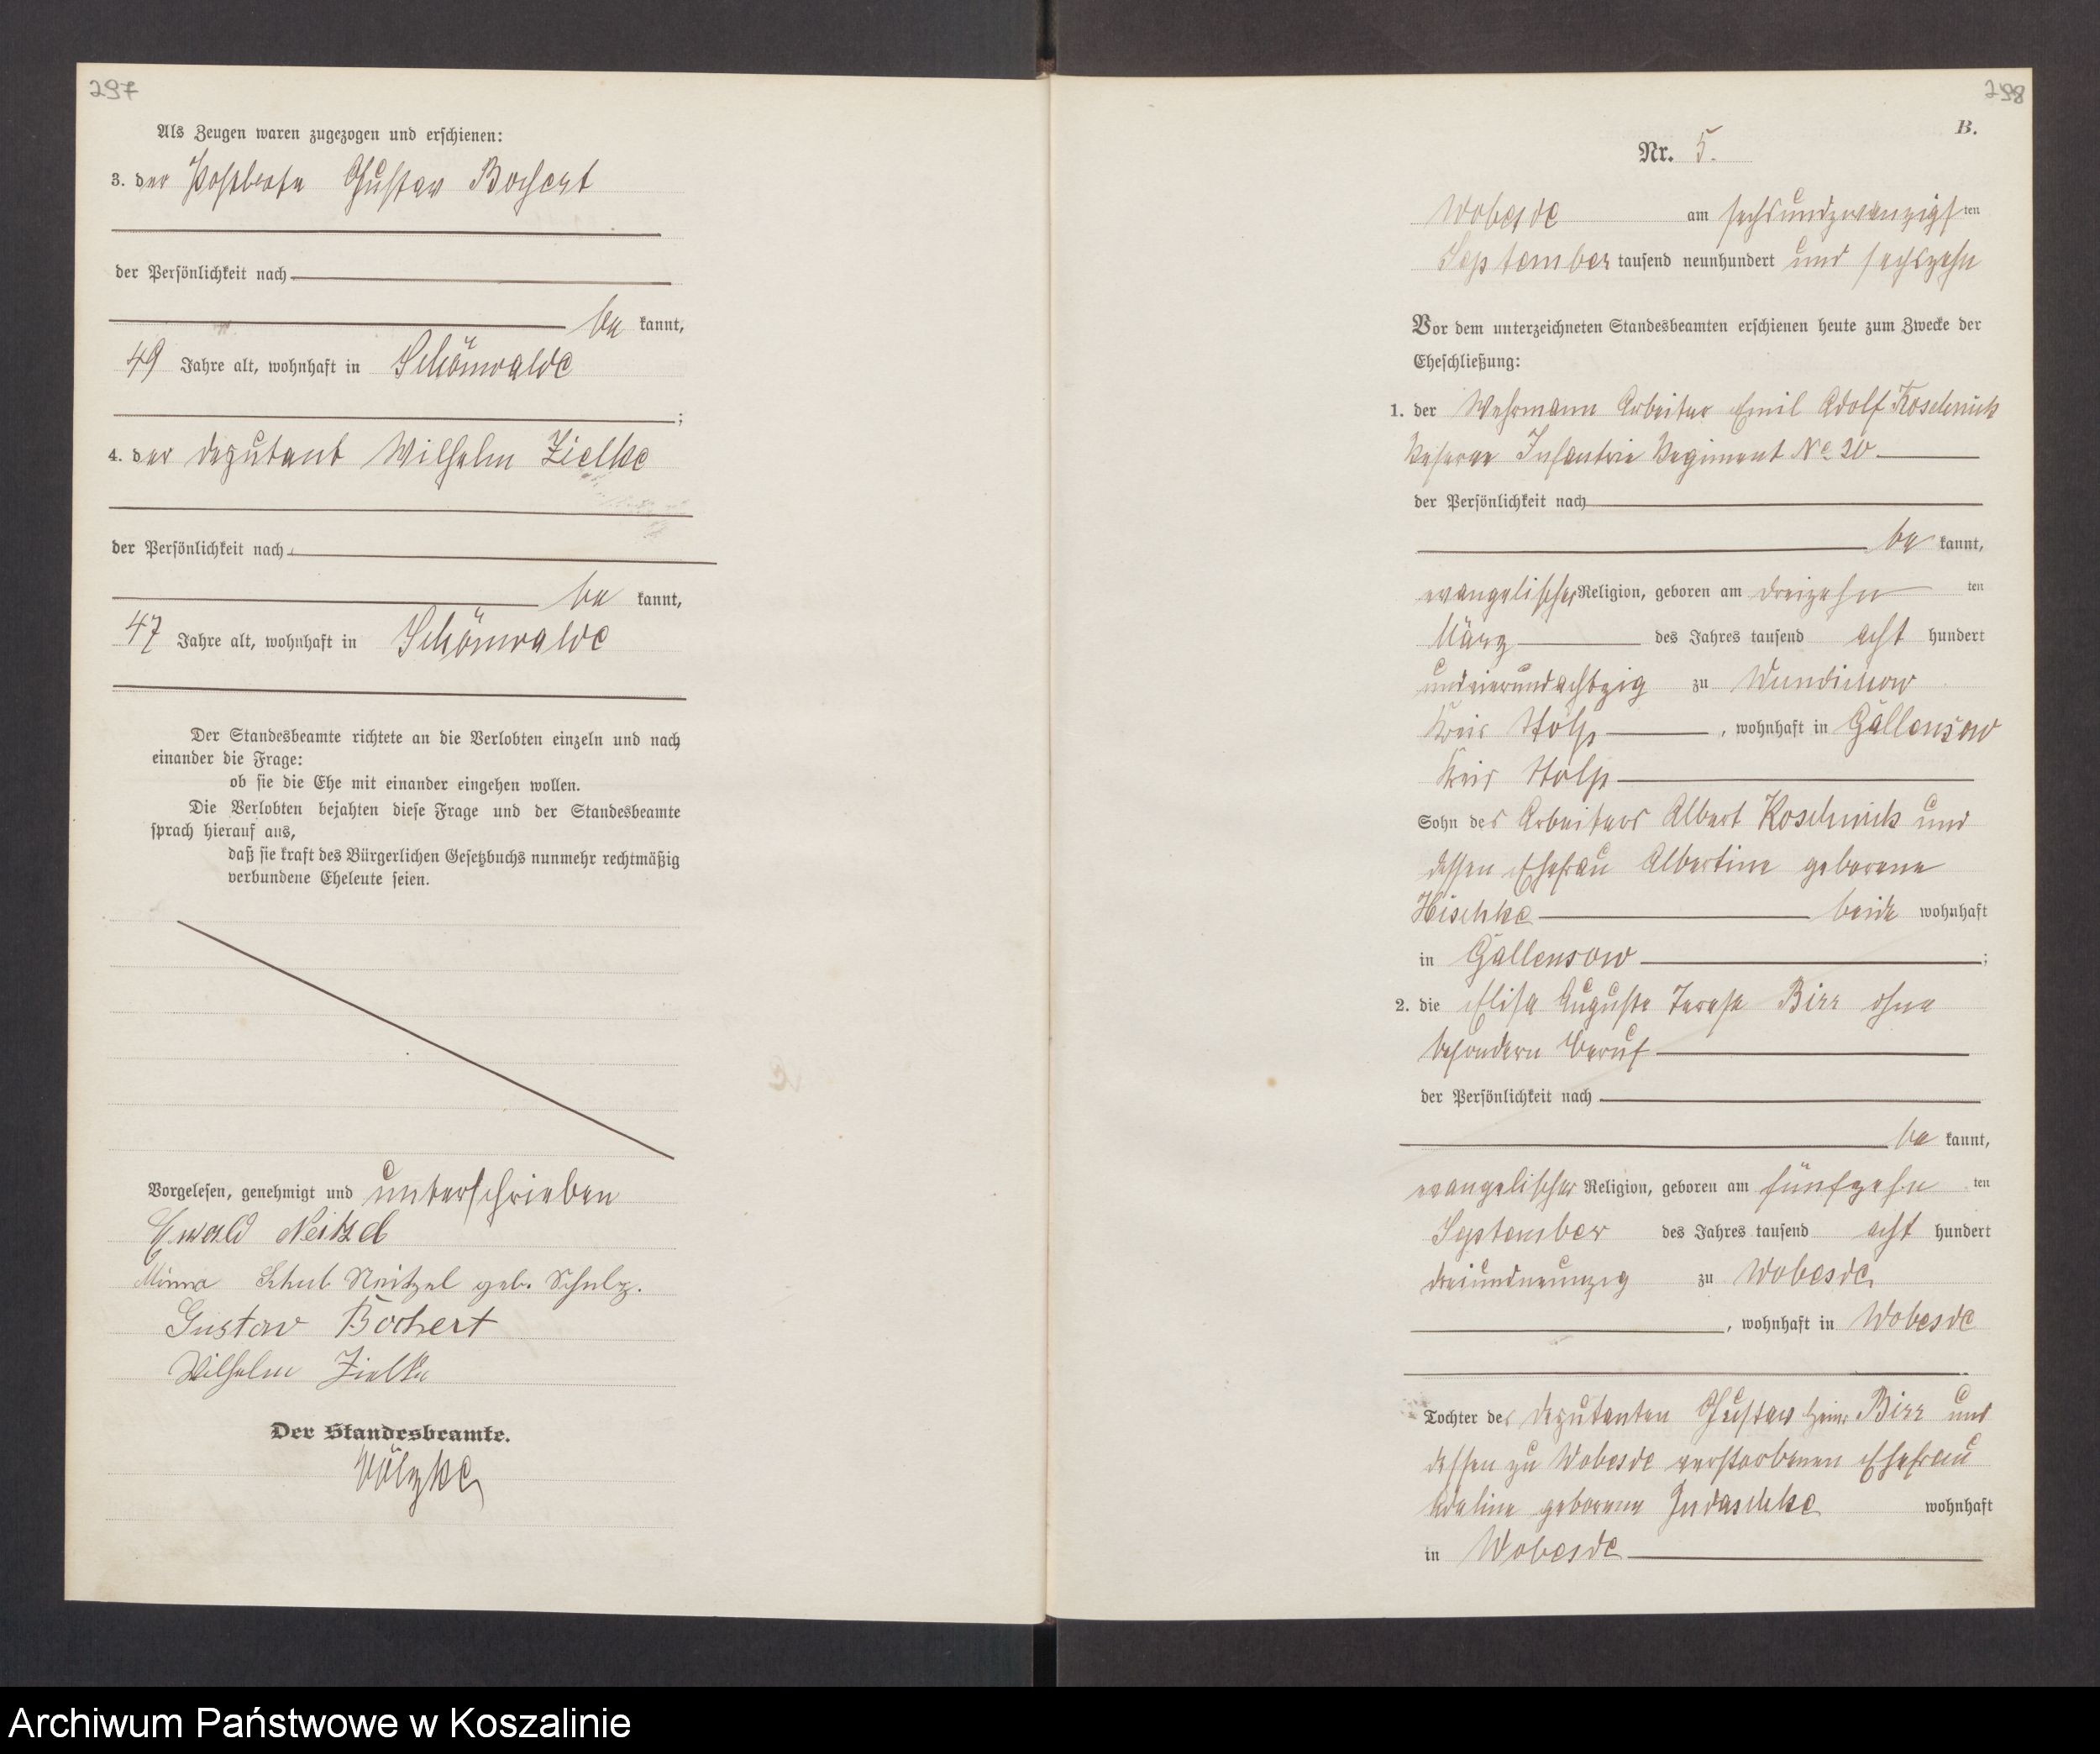 297
Als Zeugen waren zugezogen und erschienen:
3. der Postbote Gustav Bochert
der Persönlichkeit nach
be kannt,
49 Jahre alt, wohnhaft in Schönwalde
;
4. der Deputant Wilhelm Zielke
der Persönlichkeit nach
be kannt,
47 Jahre alt, wohnhaft in Schönwalde
Der Standesbeamte richtete an die Verlobten einzeln und nach
einander die Frage:
ob sie die Ehe mit einander eingehen wollen.
Die Verlobten bejahten diese Frage und der Standesbeamte
sprach hierauf aus,
daß sie kraft des Bürgerlichen Gesetzbuchs nunmehr rechtmäßig
verbundene Eheleute seien.
Vorgelesen, genehmigt und unterschrieben
Ewald Neitzel
Minna Neitzel geb. Schulz.
Gustav Bochert
Wilhelm Zielke
Der Standesbeamte.
Völzke
298
B.
Nr. 5.
Wobesde am sechsundzwanzigsten
September tausend neunhundert und sechszehn
Vor dem unterzeichneten Standesbeamten erschienen heute zum Zwecke der
Eheschließung:
1. der Wehrmann Arbeiter Emil Adolf Koschnick
Reserve Infantrie Regiment No 20
der Persönlichkeit nach
be kannt,
evangelischer Religion, geboren am dreizehn ten
März des Jahres tausend acht hundert
undvierundachtzig zu Wundichow
Kreis Stolp, wohnhaft in Gallensow
Kreis Stolp
Sohn des Arbeiters Albert Koschnick und
dessen Ehefrau Albertine geborene
beide wohnhaft
in Gallensow ;
2. die Elise Auguste Terese Birr ohne
besondern Beruf
der Persönlichkeit nach
be kannt,
evangelischer Religion, geboren am fünfzehn ten
September des Jahres tausend acht hundert
dreiundneunzig zu Wobesde
, wohnhaft in Wobesde
Tochter des Deputanten Gustav Heinr Birr und
dessen zu Wobesde verstorbenen Ehefrau
Adeline geborene Judaschke wohnhaft
in Wobesde
Archiwum Państwowe w Koszalinie